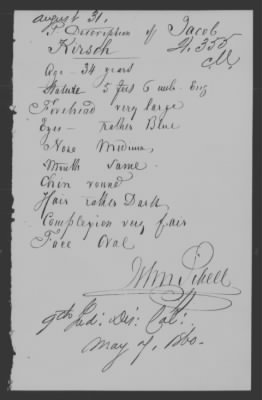 August 31.
Description of Jacob
Kirsch
355
Age - 34 years
Stature 5 feet 6 inch. Eng
Forehead very large
Eyes - rather Blue
Nose Medium
Mouth Same.
Chin round
Hair rather Dark
Complexion very fair
Face Oval
9th Jud: Dis: Cal:
May 7,